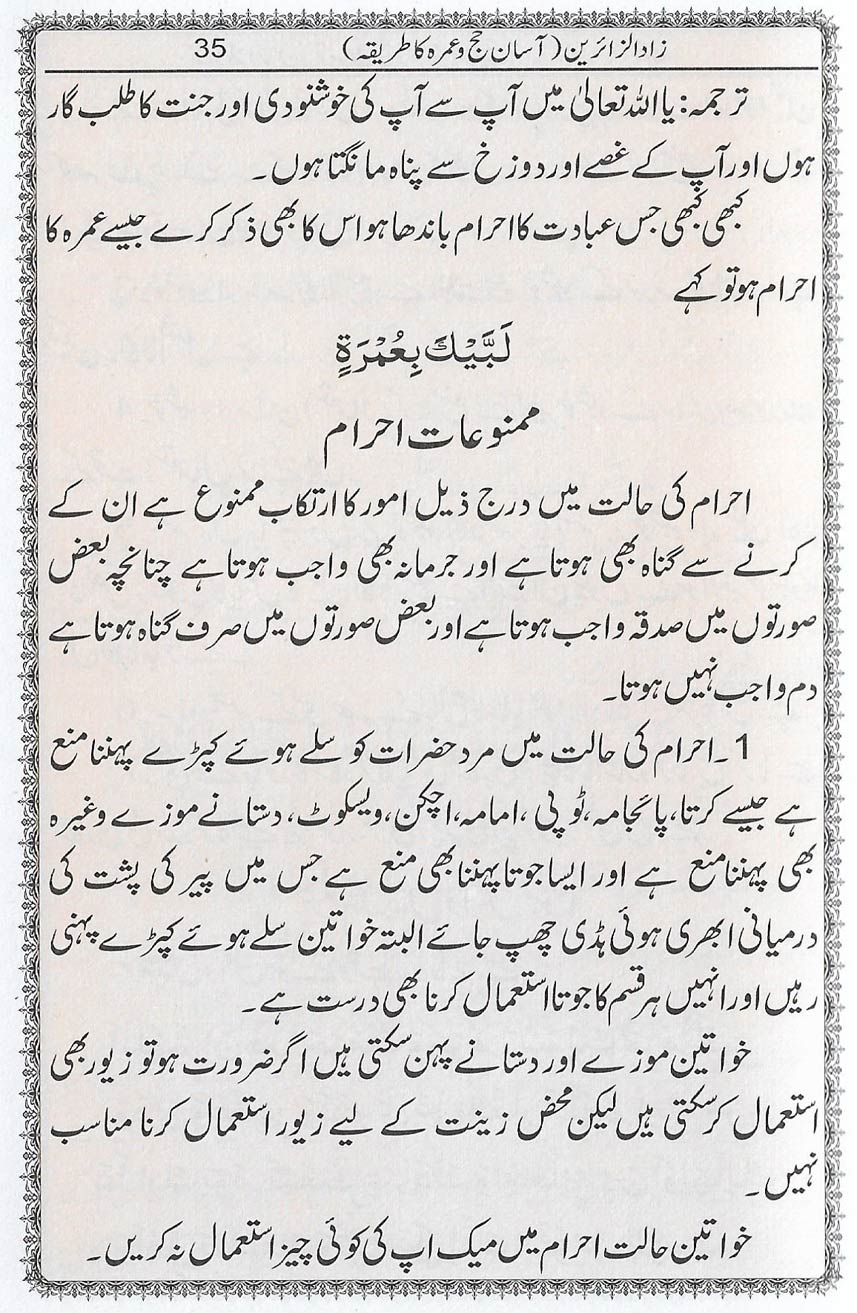 زادالزائرین (آسان حج وعمرہ کا طریقہ) 35
ترجمہ: یااللہ تعالیٰ میں آپ سے آپ کی خوشنودی اور جنت کا طلب گار
ہوں اور آپ کے غصے اور دوزخ سے پناہ مانگتا ہوں۔
کبھی کبھی جس عبادت کا احرام باندھا ہو اس کا بھی ذکر کرے جیسے عمرہ کا
احرام ہو تو کہے
لَبَّيْكَ بِعُمْرَةٍ
ممنوعات احرام
احرام کی حالت میں درج ذیل امور کا ارتکاب ممنوع ہے ان کے
کرنے سے گناہ بھی ہوتا ہے اور جرمانہ بھی واجب ہوتا ہے چنانچہ بعض
صورتوں میں صدقہ واجب ہوتا ہے اور بعض صورتوں میں صرف گناہ ہوتا ہے
دم واجب نہیں ہوتا۔
1۔احرام کی حالت میں مرد حضرات کو سلے ہوئے کپڑے پہننا منع
ہے جیسے کرتا، پائجامہ، ٹوپی، امامہ، اچکن، ویسکوٹ، دستانے موزے وغیرہ
بھی پہننا منع ہے اور ایسا جوتا پہننا بھی منع ہے جس میں پیر کی پشت کی
درمیانی ابھری ہوئی ہڈی چھپ جائے البتہ خواتین سلے ہوئے کپڑے پہنی
رہیں اور انہیں ہر قسم کا جوتا استعمال کرنا بھی درست ہے۔
خواتین موزے اور دستانے پہن سکتی ہیں اگر ضرورت ہو تو زیور بھی
استعمال کرسکتی ہیں لیکن محض زینت کے لیے زیور استعمال کرنا مناسب
نہیں۔
خواتین حالت احرام میں میک اپ کی کوئی چیز استعمال نہ کریں۔